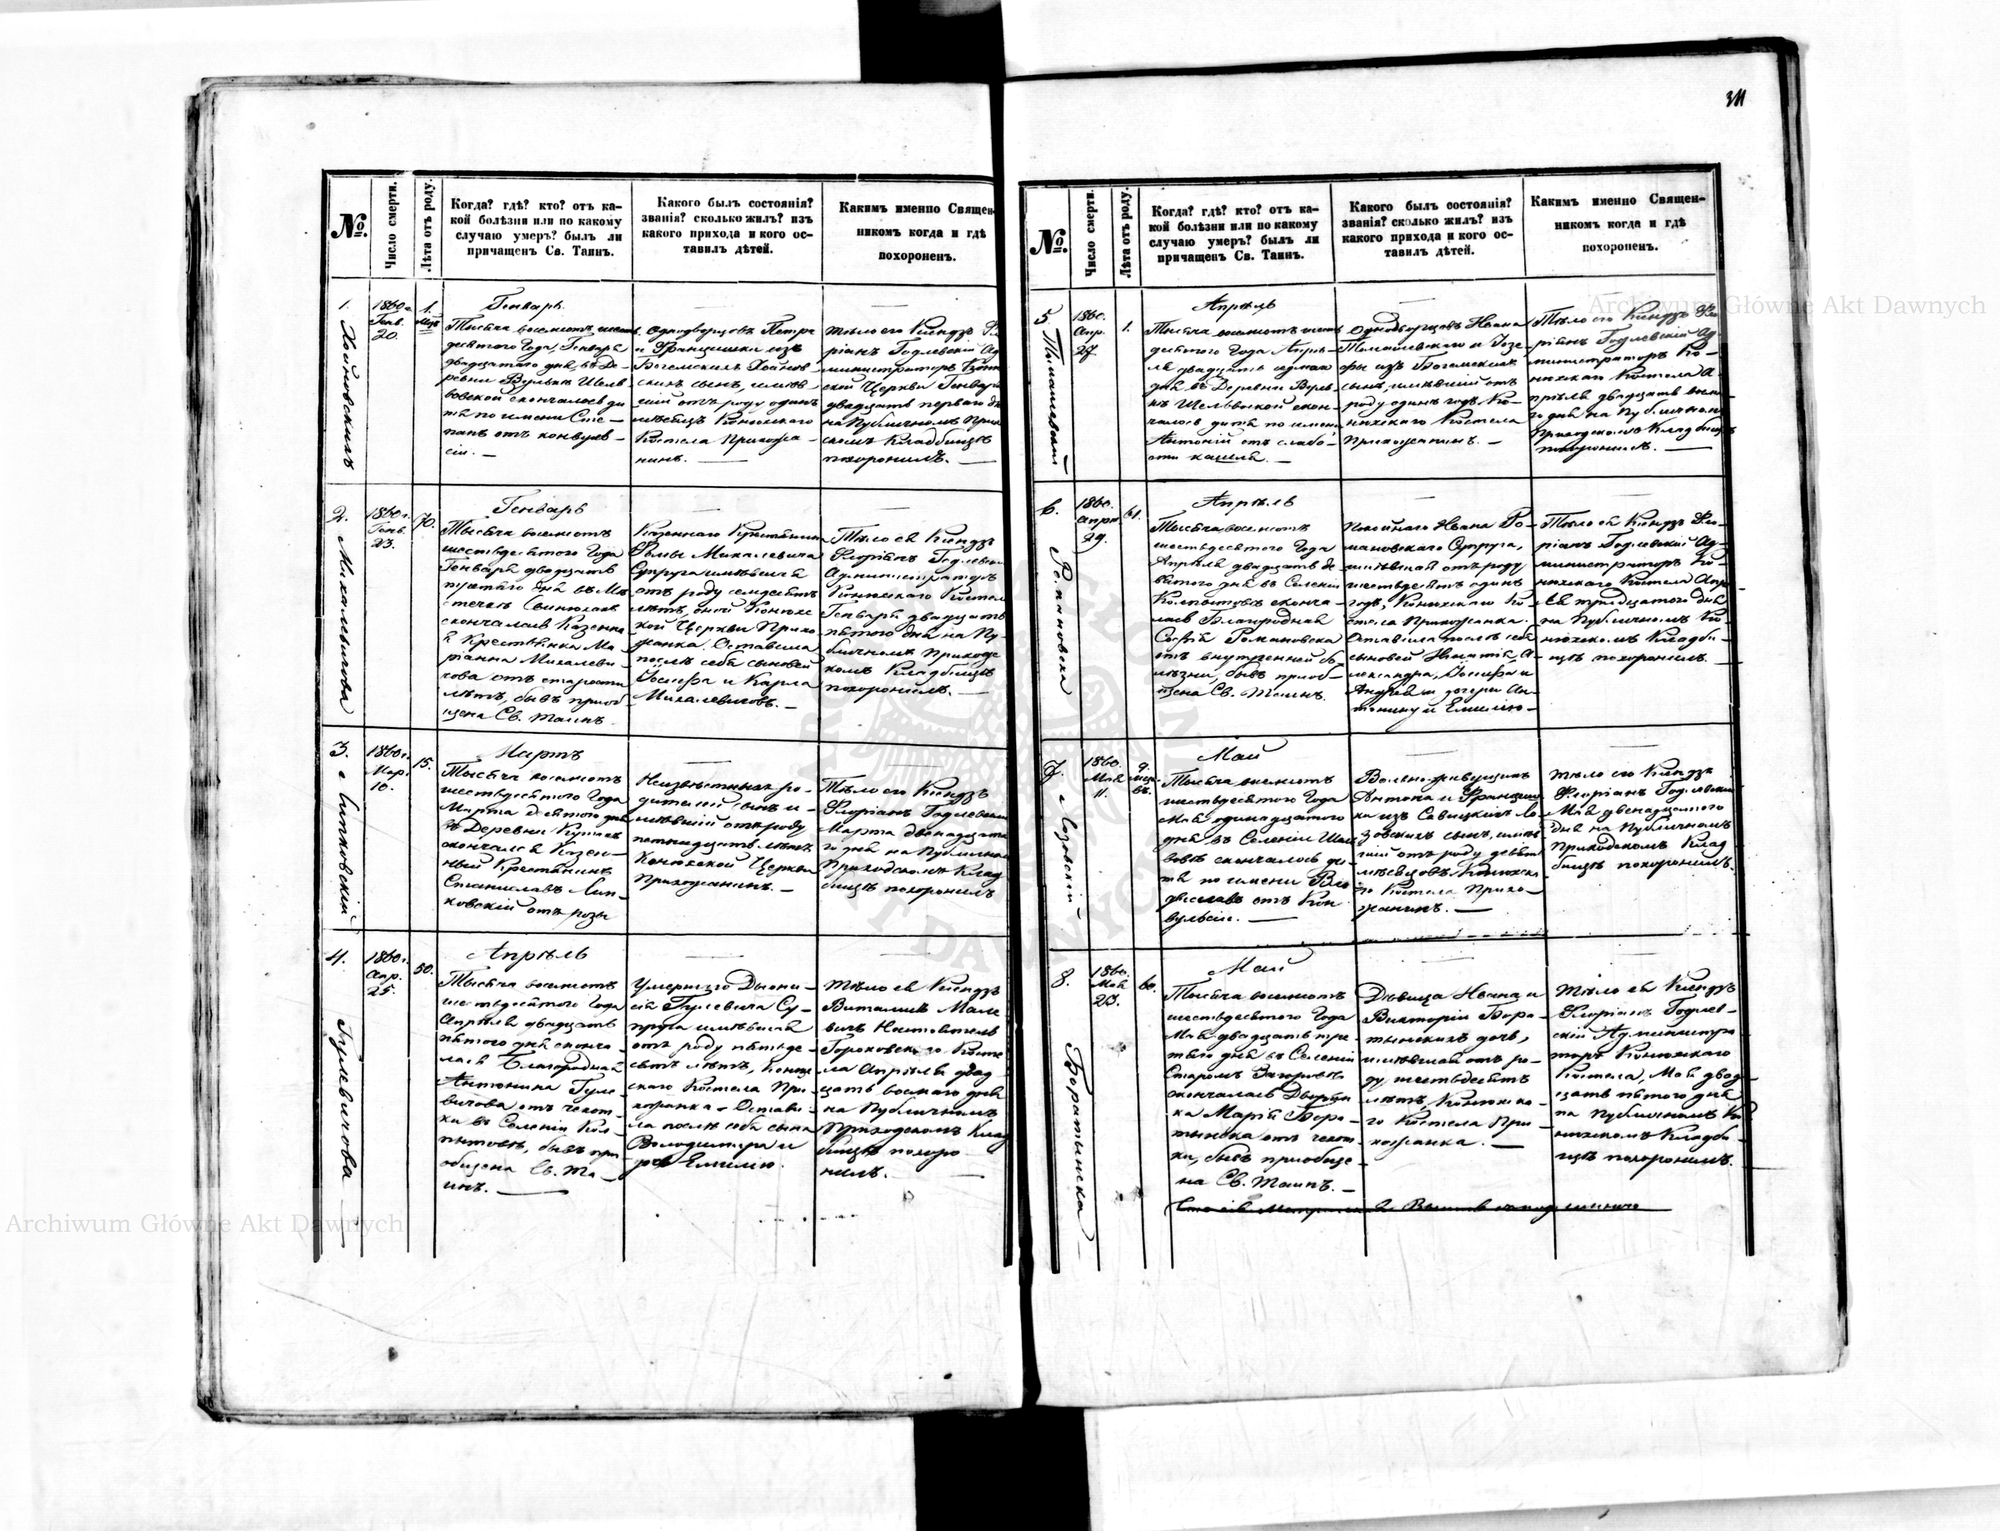 311
№.
Число смерти.
Лѣта отъ роду.
Когда? гдѣ? кто? отъ ка-
кой болѣзни или по какому
случаю умеръ? былъ ли
причащенъ Св. Таинъ.
Какого былъ состоянія?
званія? сколько жилъ? изъ
какого прихода и кого ос-
тавилъ дѣтей.
Каким именно Священ-
никомъ когда и гдѣ
похороненъ.
1.
Хойновскихъ
1860 г.
Генв.
20.
1.
Мѣс
Генварь
Тысяча восемсотъ шесть
десятого Года, Генваря
двадцатого дня, въ Де-
ревни Вульки Шель
вовской скончалось ди
тя по имени Сте-
панъ отъ конвуль-
сіи. —
Однодворцовъ Петра
и Францишки изъ
Богемскихъ Хойнов
скихъ сынъ, имѣв-
шій отъ роду одинъ
мѣсяцъ Конюхского
Костела Прихожа-
нинъ. —
тѣло его Ксендзъ Фло
ріанъ Годлевскій Ад
министраторъ Конюх
ской Церкви Генваря
двадцать перваго дня
на Публичномъ Прих
скомъ Кладбищѣ
похоронилъ. —
2.
Михалевичова
1860 г.
Генв.
23.
70.
Генварь
Тысяча восемсотъ
шестьдесятого Года
Генваря двадцать
третяго дня въ Мѣ
стечкѣ Свинюхахъ
скончалась Казенна
я Крестьянка Ма
ріанна Михалеви-
чова отъ старости
лѣтъ, бывъ приоб
щена Св. Таинъ.
Казеннаго Крестьянина
Фомы Михалевича
Супруга имѣвшая
отъ роду семдесятъ
лѣтъ, оной Конюхс
кой Церкви Прихо
жанка. Оставила
послѣ себя сыновей
Іосифа и Карла
Михалевичовъ. —
Тѣло ея Ксендзъ
Флоріанъ Годлевскій
Администраторъ
Конюхского Костела
Генваря двадцать
пятого дня на Пу-
бличномъ Приходс
комъ Кладбищѣ
похоронилъ. —
3.
Липковскій
1860 г.
Мар.
10.
15.
Мартъ
Тысяча восемсотъ
шестьдесятого Года
Марта десятого дня
въ Деревни
скончался Казен-
ный Крестянинъ
Станиславъ Лип-
ковскій отъ розы
Неизвѣстныхъ ро-
дителей сынъ и-
мѣвшій отъ роду
пятнадцать лѣтъ
Конюхской Церкви
Прихожанинъ. —
Тѣло его Ксендзъ
Флоріанъ Годлевскій
Марта двенадцата
го дня на Публичномъ
Приходскомъ Клад
бищѣ похоронилъ
4.
Гулевичова
1860 г.
Апр.
25.
50.
Апрѣль
Тысяча восемсотъ
шестьдесятого Года
Апрѣля двадцать
пятого дня сконча
лась Благородная
Антонина Гуле
вичова отъ чехот-
ки въ Селеніи Кол-
пытовѣ, бывъ при
общена Св. Та-
инъ. —
Умершого Діони-
сія Гулевича Су-
пруга имѣвшая
отъ роду пятьде-
сятъ лѣтъ, Конюх
скаго Костела При-
хожанка. Остави-
ла послѣ себя сына
Володимира и
Емилію.
тѣло ея Ксендзъ
Виталисъ Мале
вичъ Настоятель
Гороховского Косте
ла Апрѣля двад
цать восмаго дня
на Публичномъ
Приходскомъ Клад
бищѣ похоро
нилъ. —
№.
Число смерти.
Лѣта отъ роду.
Когда? гдѣ? кто? отъ ка-
кой болѣзни или по какому
случаю умеръ? былъ ли
причащенъ Св. Таинъ.
Какого былъ состоянія?
званія? сколько жилъ? изъ
какого прихода и кого ос-
тавилъ дѣтей.
Каким именно Священ-
никомъ когда и гдѣ
похороненъ.
5.
Томашевскій
1860.
Апр.
27.
1.
Апрѣль
Тысяча восемсотъ шесть
десятого Года Апрѣ-
ля двадцать седмаго
дня въ Деревни Вуль-
къ Шельвовской скон-
чалось дитя по имени
Антоній отъ слабо-
сти кашля. —
Однодворцовъ Ивана
Томашевскаго и Юзе-
фы изъ Богемскихъ
сынъ, имѣвшій отъ
роду одинъ годъ Ко-
нюхскаго Костела
Прихожанинъ. —
Тѣло его Ксендзъ Фло
ріанъ Годлевскій Ад-
министраторъ Ко-
нюхскаго Костела А-
прѣля двадцать восма-
го дня на Публичномъ
Приходскомъ Кладбищѣ
похоронилъ. —
6.
Романовска
1860.
Апрѣ
29.
61.
Апрѣль
Тысяча восемсотъ
шестьдесятого Года
Апрѣля двадцать де
вятого дня въ Селеніи
Колпытовѣ сконча-
лась Благородная
Софія Романовска
отъ внутренней бо-
лѣзни, бывъ приоб-
щена Св. Таинъ.
Покойнаго Ивана Ро-
мановскаго Супруга,
имѣвшая отъ роду
шестьдесятъ одинъ
годъ, Конюхскаго Ко
стела Прихожанка.
Оставила послѣ себя
сыновей Игнатія, А-
лександра, Іосифа и
Андрея и дочери Ан-
тонину и Емилію —
Тѣло ея Ксендзъ Фло-
ріанъ Годлевскій Ад-
министраторъ Ко-
нюхскаго Костела Апрѣ
ля тридцатого дня
на Публичномъ Ко-
нюхскомъ Кладби-
щѣ похоронилъ. —
7.
Лозовскій
1860.
Мая
11.
9.
мѣся
въ.
Май
Тысяча восемсотъ
шестьдесятого Года
Мая одинадцатого
дня въ Селеніи Шель
вовѣ скончалось ди-
тя по имени Вла
диславъ отъ Кон
вульсіи. —
Вольно-живущихъ
Антона и Францишки
изъ Савицкихъ Ло
зовскихъ сынъ, имѣв
шій отъ роду девять
мѣсяцовъ, Конюхска
го Костела Прихо-
жанинъ. —
тѣло его Ксендзъ
Флоріанъ Годлевскій
Мая двенадцатого
дня на Публичномъ
Приходскомъ Клад
бищѣ похоронилъ.
8.
Боратынска
1860.
Мая
23.
60.
Май
Тысяча восемсотъ
шестьдесятого Года
Мая двадцать тре-
тьяго дня въ Селеніи
Старомъ Загоровѣ
скончалась Дворян
ка Марія Бора-
тынска отъ чехот-
ки, бывъ приобще-
на Св. Таинъ. —
Дѣвица Ивана и
Викторіи Бора-
тынскихъ дочь,
имѣвшая отъ ро-
ду шестьдесятъ
лѣтъ, Конюхско-
го Костела При-
хожанка. —
Тѣло ея Ксендзъ
Флоріанъ Годлев-
скій Администра
торъ Конюхскаго
Костела, Мая двад
цать пятого дня
на Публичномъ Ко
нюхскомъ Кладби-
щѣ похоронилъ.
Archiwum Główne Akt Dawnych
Archiwum Główne Akt Dawnych